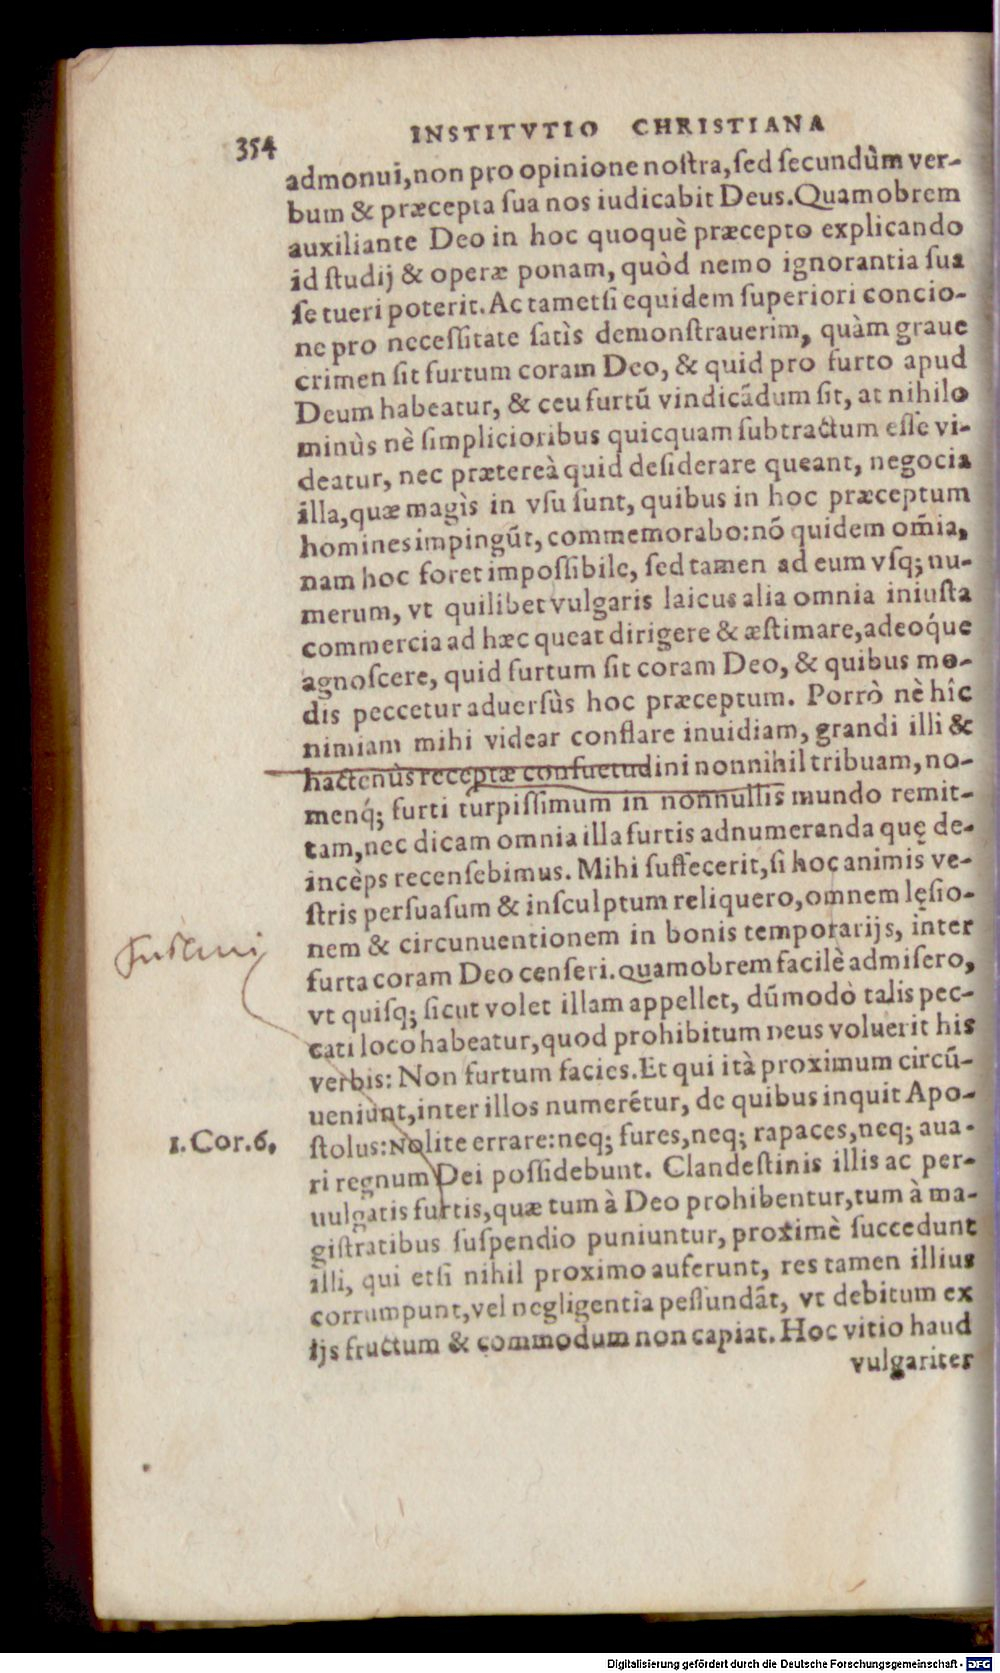 354 INSTITVTIO CHRISTIANA
admonui, non pro opinione noſtra, ſed ſecundùm ver-
bum & præcepta ſua nos iudicabit Deus. Quamobrem
auxiliante Deo in hoc quoquè præcepto explicando
id ſtudij & operæ ponam, quòd nemo ignorantia ſua
ſe tueri poterit. Ac tametſi equidem ſuperiori concio-
ne pro neceſſitate ſatìs demonſtrauerim, quàm graue
crimen ſit furtum coram Deo, & quid pro furto apud
Deum habeatur, & ceu furtũ vindicãdum ſit, at nihilo
minùs nè ſimplicioribus quicquam ſubtractum eſſe vi-
deatur, nec prætereà quid deſiderare queant, negocia
illa, quæ magìs in vſu ſunt, quibus in hoc præceptum
homines impingũt, commemorabo: nõ quidem om̃ia,
nam hoc foret impoſſibile, ſed tamen ad eum vſq; nu-
merum, vt quilibet vulgaris laicus alia omnia iniuſta
commercia ad hæc queat dirigere & æſtimare, adeoq́ue
agnoſcere, quid furtum ſit coram Deo, & quibus mo-
dis peccetur aduerſùs hoc præceptum. Porrò nè hîc
nimiam mihi videar conflare inuidiam, grandi illi &
hactenùs receptæ conſuetudini nonnihil tribuam, no-
menq́; furti turpiſſimum in nonnullis mundo remit-
tam, nec dicam omnia illa furtis adnumeranda quę de-
incèps recenſebimus. Mihi ſuffecerit, ſi hoc animis ve-
ſtris perſuaſum & inſculptum reliquero, omnem lęſio-
nem & circunuentionem in bonis temporarijs, inter
furta coram Deo cenſeri. Quamobrem facilè admiſero,
vt quiſq; ſicut volet illam appellet, dũmodò talis pec-
cati loco habeatur, quod prohibitum Deus voluerit his
verbis: Non furtum facies. Et qui ità proximum circũ-
ueniunt, inter illos numerétur, de quibus inquit Apo-
1. Cor. 6. ſtolus: Nolite errare: neq; fures, neq; rapaces, neq; aua-
ri regnum Dei poſſidebunt. Clandeſtinis illis ac per-
uulgatis furtis, quæ tum à Deo prohibentur, tum à ma-
giſtratibus ſuſpendio puniuntur, proximè ſuccedunt
illi, qui etſi nihil proximo auferunt, res tamen illius
corrumpunt, vel negligentia peſſundãt, vt debitum ex
ijs fructum & commodum non capiat. Hoc vitio haud
vulgariter
Digitalisierung gefördert durch die Deutsche Forschungsgemeinschaft - DFG